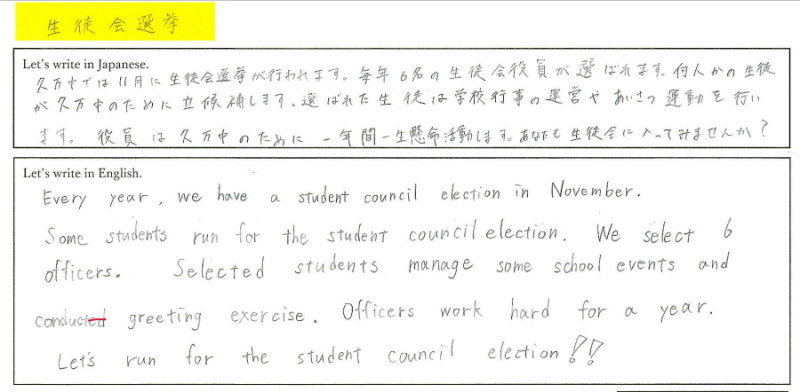 生徒会選挙
Let's write in Japanese.
久万中では11月に生徒会選挙が行われます。毎年6名の生徒会役員が選ばれます。何人かの生徒
が久万中のために立候補します。選ばれた生徒は学校行事の運営やあいさつ運動を行い
ます。役員は久万中のために一年間一生懸命活動します。あなたも生徒会に入ってみませんか？
Let's write in English.
Every year, we have a student council election in November.
Some students run for the student council election. We select 6
officers. Selected students manage some school events and
conducted greeting exercise. Officers work hard for a year.
Let's run for the student council election!!